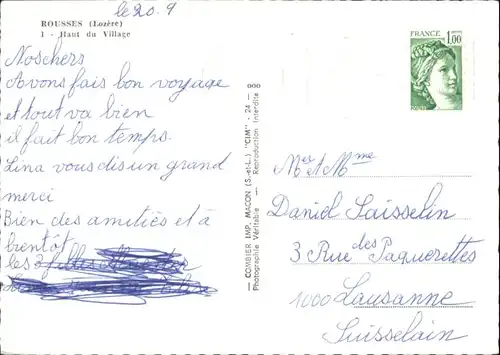 le 20.9
ROUSSES (Lozère)
1 - Haut du Village
Noschers
Avons fais bon voyage
et tout va bien
il fait bon temps.
Lina vous dis un grand
merci
Bien des amitiés et à
bientôt
les 3 filles
— COMBIER IMP. MACON (S.-et-L.) "CIM" - 24 - 000
Photographie Véritable — Reproduction Interdite
FRANCE
1,00
Mer et Mme
Daniel Saisselin
3 Rue des Paquerettes
1000 Lausanne
Suisselain